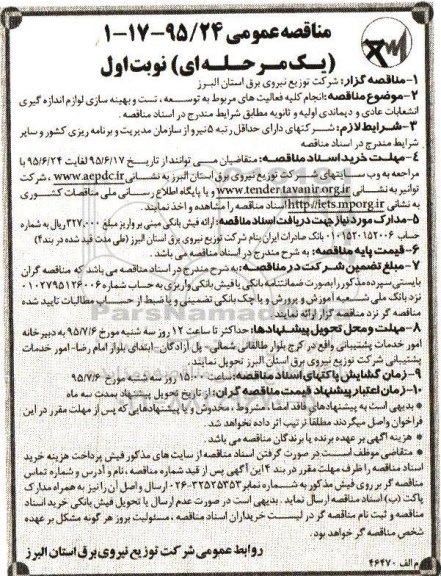 مناقصه عمومی ۹۵/۲۴-۱۷-۱
(یک مرحله ای) نوبت اول
۱-مناقصه گزار: شرکت توزیع نیروی برق استان البرز
۲-موضوع مناقصه: انجام کلیه فعالیت های مربوط به توسعه ، تست و بهینه سازی لوازم اندازه گیری
انشعابات عادی و دیماندی اولیه و ثانویه مطابق شرایط مندرج در اسناد مناقصه .
۳-شرایط لازم: شرکتهای دارای حداقل رتبه ۵ نیرو از سازمان مدیریت و برنامه ریزی کشور و سایر
شرایط مندرج در اسناد مناقصه
۴-مهلت خرید اسناد مناقصه: متقاضیان می توانند از تاریخ ۹۵/۶/۱۷ لغایت ۹۵/۶/۲۴ با
مراجعه به وب سایتهای ، شرکت توزیع نیروی برق استان البرز به نشانی www.aepdc.ir ، شرکت
توانیر به نشانی www.tender.tavanir.org.ir و یا پایگاه اطلاع رسانی ملی مناقصات کشوری
به نشانی http://iets.mporg.ir اسناد مناقصه را مشاهده و اخذ نمایند .
۵-مدارک مورد نیاز جهت دریافت اسناد مناقصه: ارائه فیش بانکی مبنی بر واریز مبلغ ۳۲۷.۰۰۰ ریال به شماره
حساب ۰۱۰۱۵۲۰۱۵۲۰۰۶ بانک صادرات ایران بنام شرکت توزیع نیروی برق استان البرز (طی مدت قید شده در بند۴)
۶-قیمت پایه مناقصه: به شرح مندرج در اسناد مناقصه می باشد .
۷-مبلغ تضمین شرکت در مناقصه: به شرح مندرج در اسناد مناقصه می باشد که مناقصه گران
بایستی سپرده مذکور را بصورت ضمانتنامه بانکی یا فیش بانکی واریزی به حساب شماره ۰۱۰۲۷۹۵۱۲۶۰۰۶
نزد بانک ملی شعبه آموزش و پرورش و یا چک بانکی تضمینی و یا ضبط از حساب مطالبات تایید شده
مناقصه گر نزد مناقصه گزار ارائه نمایند.
۸-مهلت و محل تحویل پیشنهادها: حداکثر تا ساعت ۱۲ روز سه شنبه مورخ ۹۵/۷/۶ به دبیرخانه
امور خدمات پشتیبانی واقع در کرج بلوار طالقانی شمالی- پل آزادگان- ابتدای بلوار امام رضا- امور خدمات
پشتیبانی شرکت توزیع نیروی برق استان البرز تحویل نمایند.
۹-زمان گشایش پاکتهای اسناد مناقصه: ساعت ۱۵:۰۰ روز سه شنبه مورخ ۹۵/۷/۶
۱۰-زمان اعتبار پیشنهاد قیمت مناقصه گران: از تاریخ تحویل پیشنهاد بمدت سه ماه
* بدیهی است به پیشنهادهای فاقد امضاء، مشروط ، مخدوش و یا پیشنهادهایی که پس از مهلت مقرر در این
فراخوان واصل میگردند مطلقا ترتیب اثر داده نخواهد شد.
* هزینه آگهی بر عهده برنده یا برندگان مناقصه می باشد.
* متقاضی موظف است در صورت گرفتن اسناد مناقصه از سایت های مذکور فیش پرداخت هزینه خرید
اسناد مناقصه را ظرف مهلت مقرر در بند ۴ این آگهی پس از قید شماره مناقصه ، نام و آدرس و شماره تماس
مناقصه گر بر روی فیش مذکور به شماره نمابر ۳۲۵۲۵۳۵۳-۰۲۶ ارسال و اصل آن را نیز به همراه مدارک
پاکت (ب) اسناد مناقصه ارسال نماید . بدیهی است در صورت عدم ارسال یا تحویل فیش بانکی خرید اسناد
مناقصه و ثبت نام مناقصه گر در لیست خریداران اسناد مناقصه ، مسئولیت بروز هر گونه مشکل بر عهده
شخص مناقصه گر خواهد بود.
روابط عمومی شرکت توزیع نیروی برق استان البرز
م الف ۴۶۴۷۰
ParsNamadData